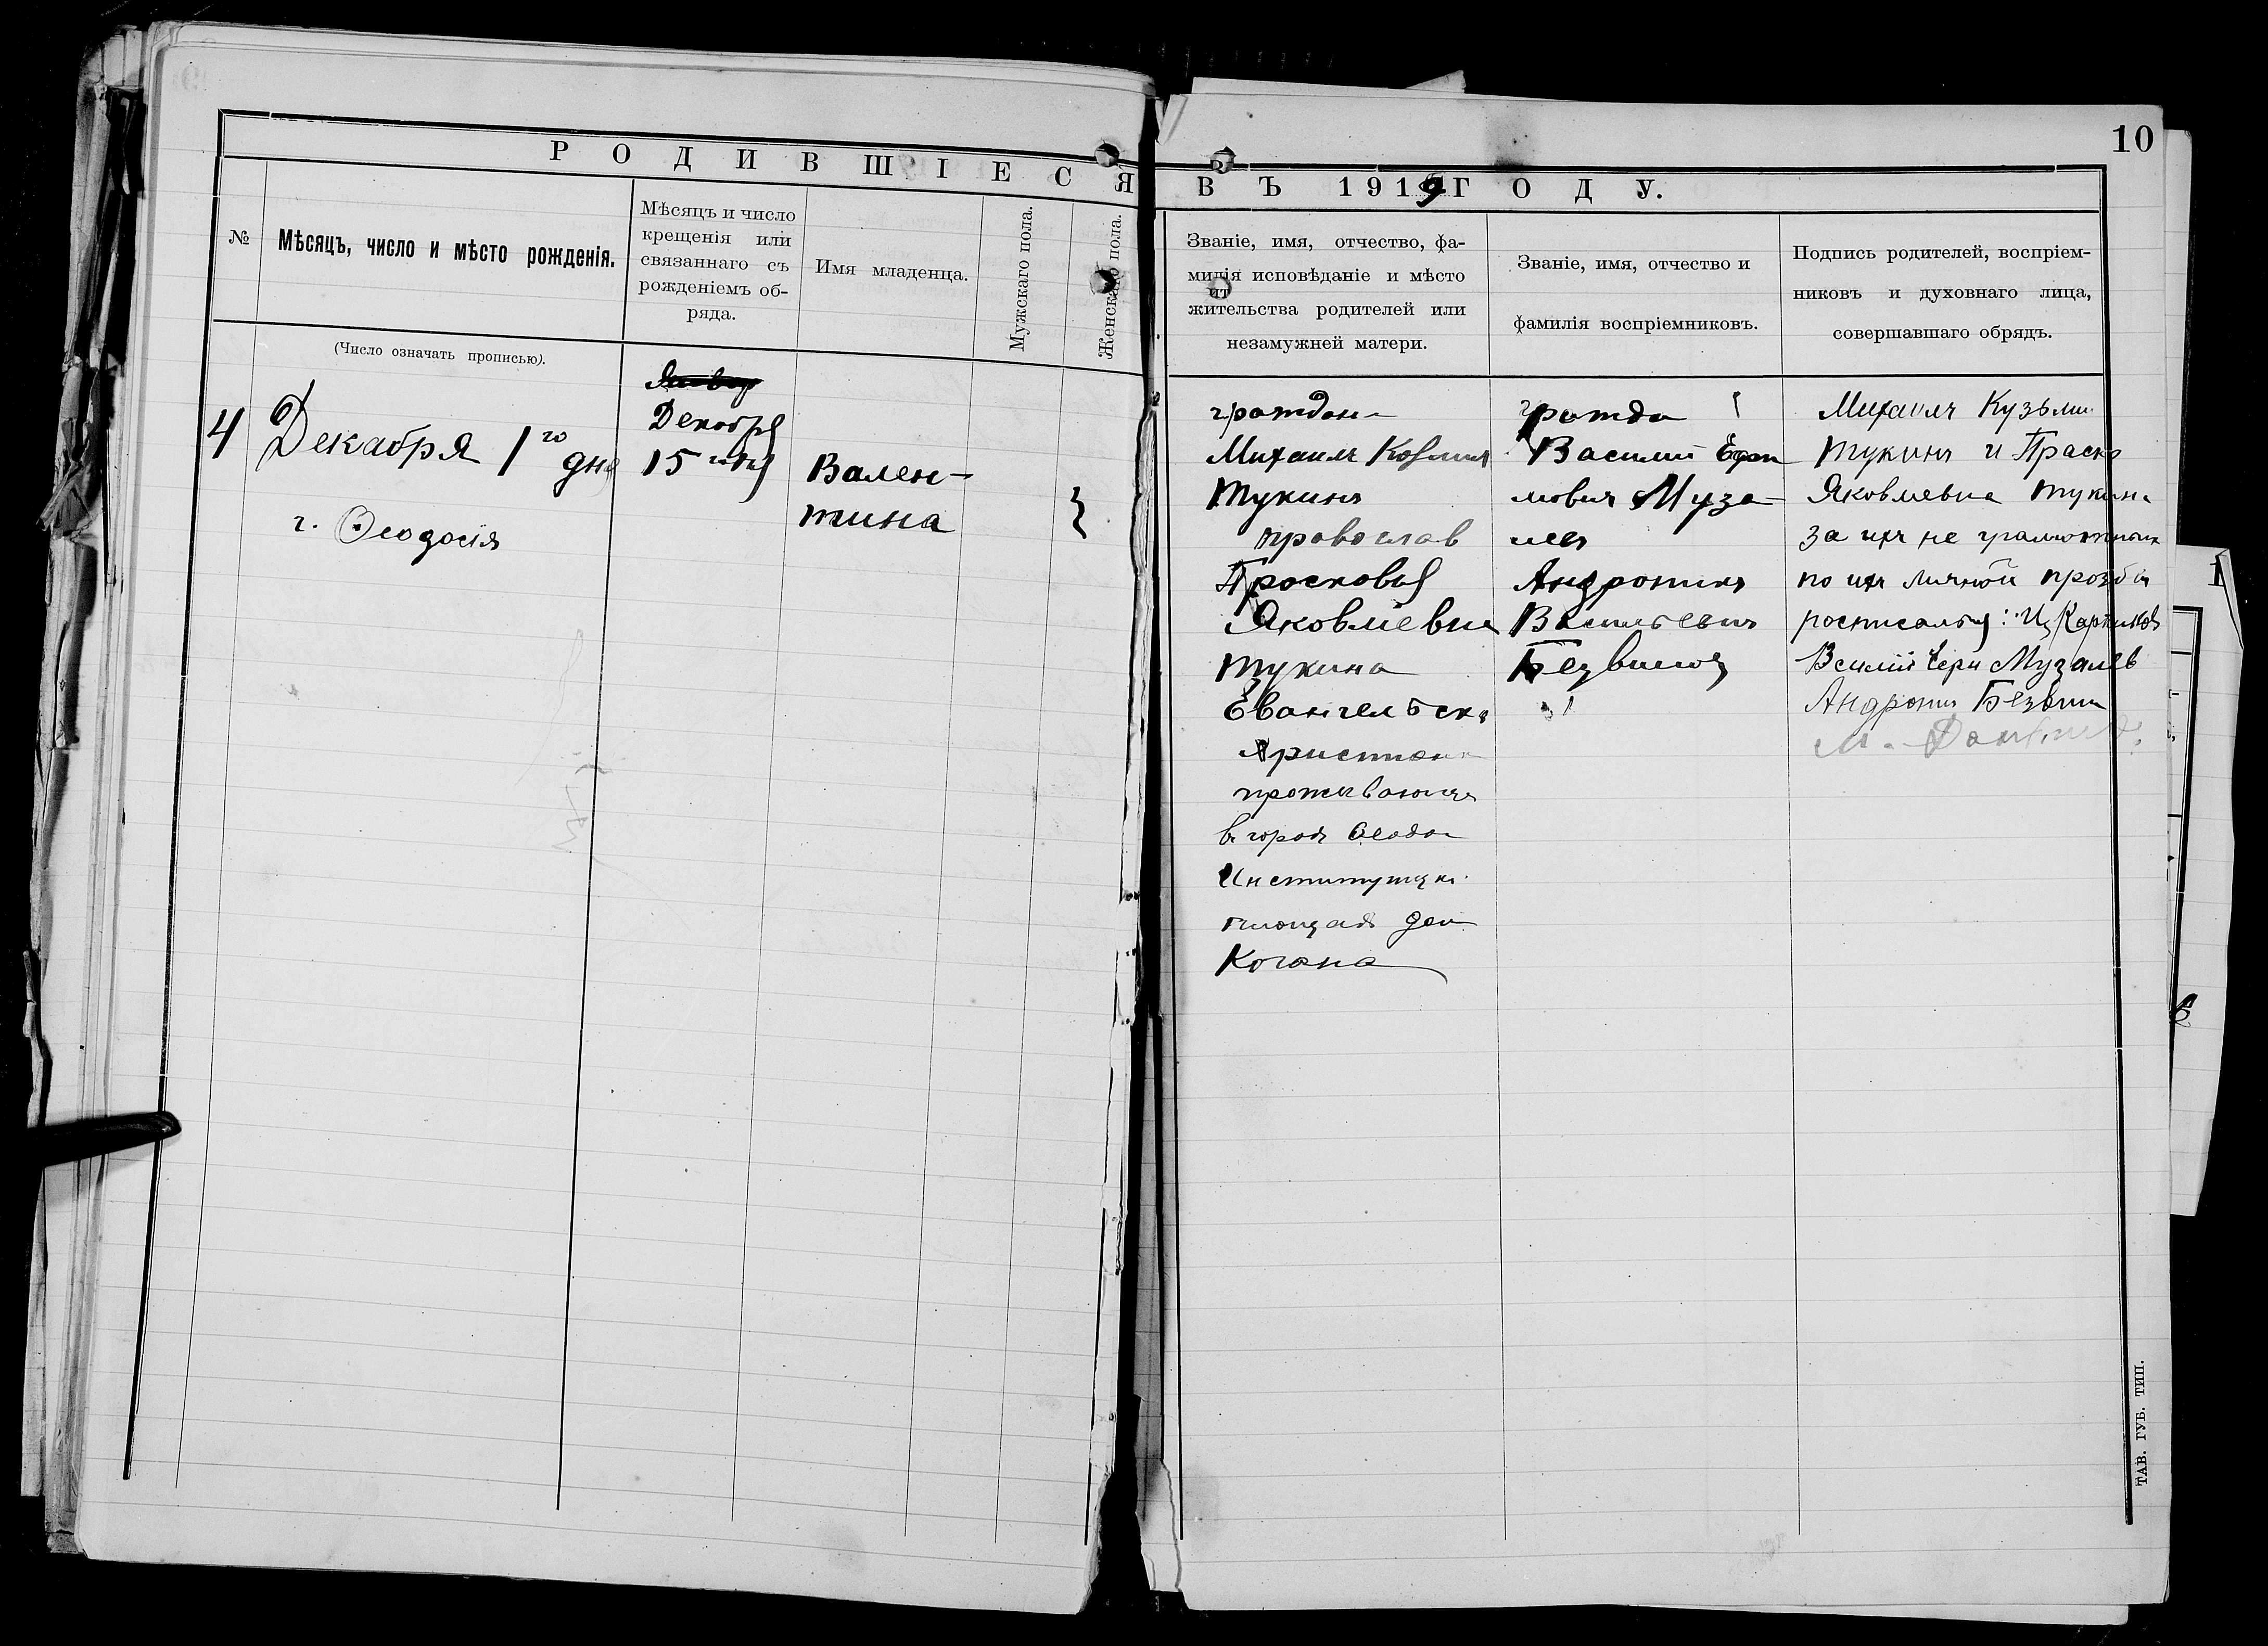 10
РОДИВШІЕСЯ ВЪ 1919 ГОДУ.
№
Мѣсяцъ, число и мѣсто рожденія.
Мѣсяцъ и число
крещенія или
связаннаго съ
рожденіемъ об-
ряда.
Имя младенца.
Мужскаго пола.
Женскаго пола.
Званіе, имя, отчество, фа-
милія исповѣданіе и мѣсто
жительства родителей или
незамужней матери.
Званіе, имя, отчество и
фамилія воспріемниковъ.
Подпись родителей, воспріем-
никовъ и духовнаго лица,
совершавшаго обрядъ.
(Число означать прописью).
4
Декабря 1го
дня
г. Ѳеодосія
Декабря
15
Вален-
тина
граждан
Михаилъ Козмич
Тукинъ
православ
Просковья
Яковлевна
Тукина
Евангельска
Христиан
проживающ
в город Ѳеодо
Институтск
площадь дом
Когана
гражда
Василий Ефи
мович Муза
лев
Андроникъ
Васильевич
Михаилъ Кузьми
Тукинъ и Праско
Яковлевна Тукин
за их не грамотных
по их личной прозби
Музалев
Андроник Безви
ТАВ. ГУБ. ТИП.